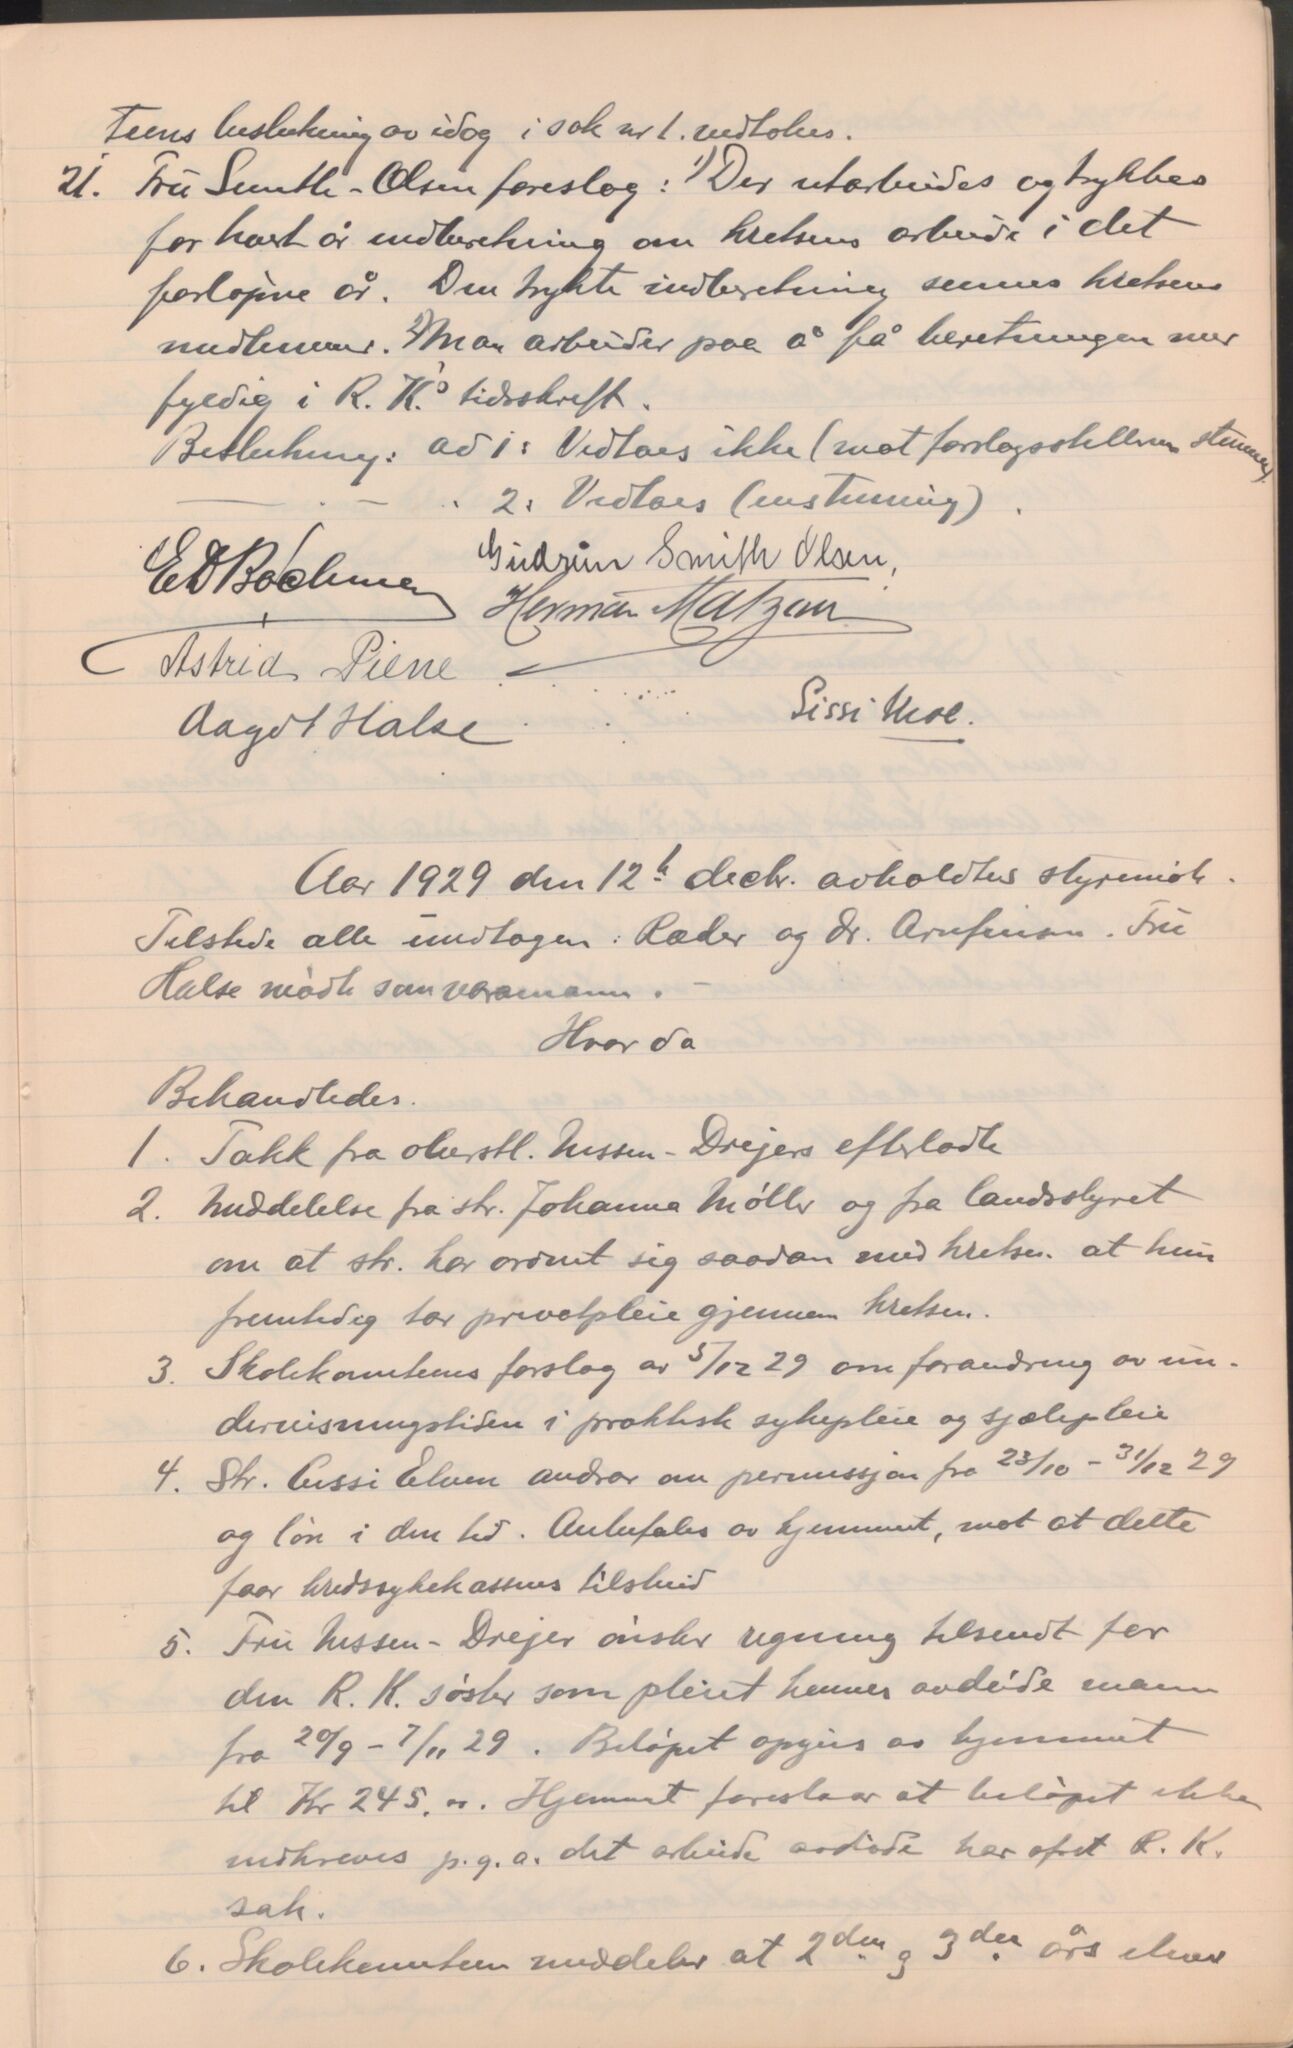 teens beslutning av idag i sak nr 1. vedtokes.
21. Fru Smith-Olsen foreslog: 1) Der utarbeides og trykkes
for hvert år indberetning om kretsens arbeide i det
forløpne år. Den trykte indberetning sennes kretsens
medlemmer. 2) Man arbeider paa å få beretningen mer
fyldig i R.K.'s tidsskrift.
Beslutning: ad 1: Vedtaes ikke (mot forslagsstillerens stemme).
— . — . 2: Vedtaes (enstemmig).
Gudrun Smith Olsen,
E D Bachmen
Herman Matzau
Astrid Piene
Sissi Moe.
Aagot Halse
Aar 1929 den 12te decbr. avholdtes styremøte.
Tilstede alle undtagen: Ræder og dr. Arnfinsen. Fru
Halse møtte som varamann. –
Hvor da
Behandledes.
1. Takk fra oberstl. Nissen-Drejers efterladte
2. Meddelelse fra str. Johanna Møller og fra landsstyret
om at str. har ordnet sig saadan med kretsen at hun
fremtidig tar privatpleie gjennem kretsen.
3. Skolekomiteens forslag av 5/12 29 om forandring av un-
dervisningstiden i praktisk sykepleie og sjælepleie
4. Str. Cissi Elven andrar om permissjon fra 23/10 – 31/12 29
og løn i den tid. Anbefales av hjemmet, mot at dette
faar kredssykekassens tilskud
5. Fru Nissen-Drejer ønsker regning tilsendt for
den R.K. søster som pleiet hennes avdøde mann
fra 20/9 – 7/11 29. Beløpet opgives av hjemmet
til Kr 245.00. Hjemmet foreslaar at beløpet ikke
indkreves p.g.a. det arbeide avdøde har ofret R.K.
sak.
6. Skolekomiteen meddeler at 2den og 3den års elever